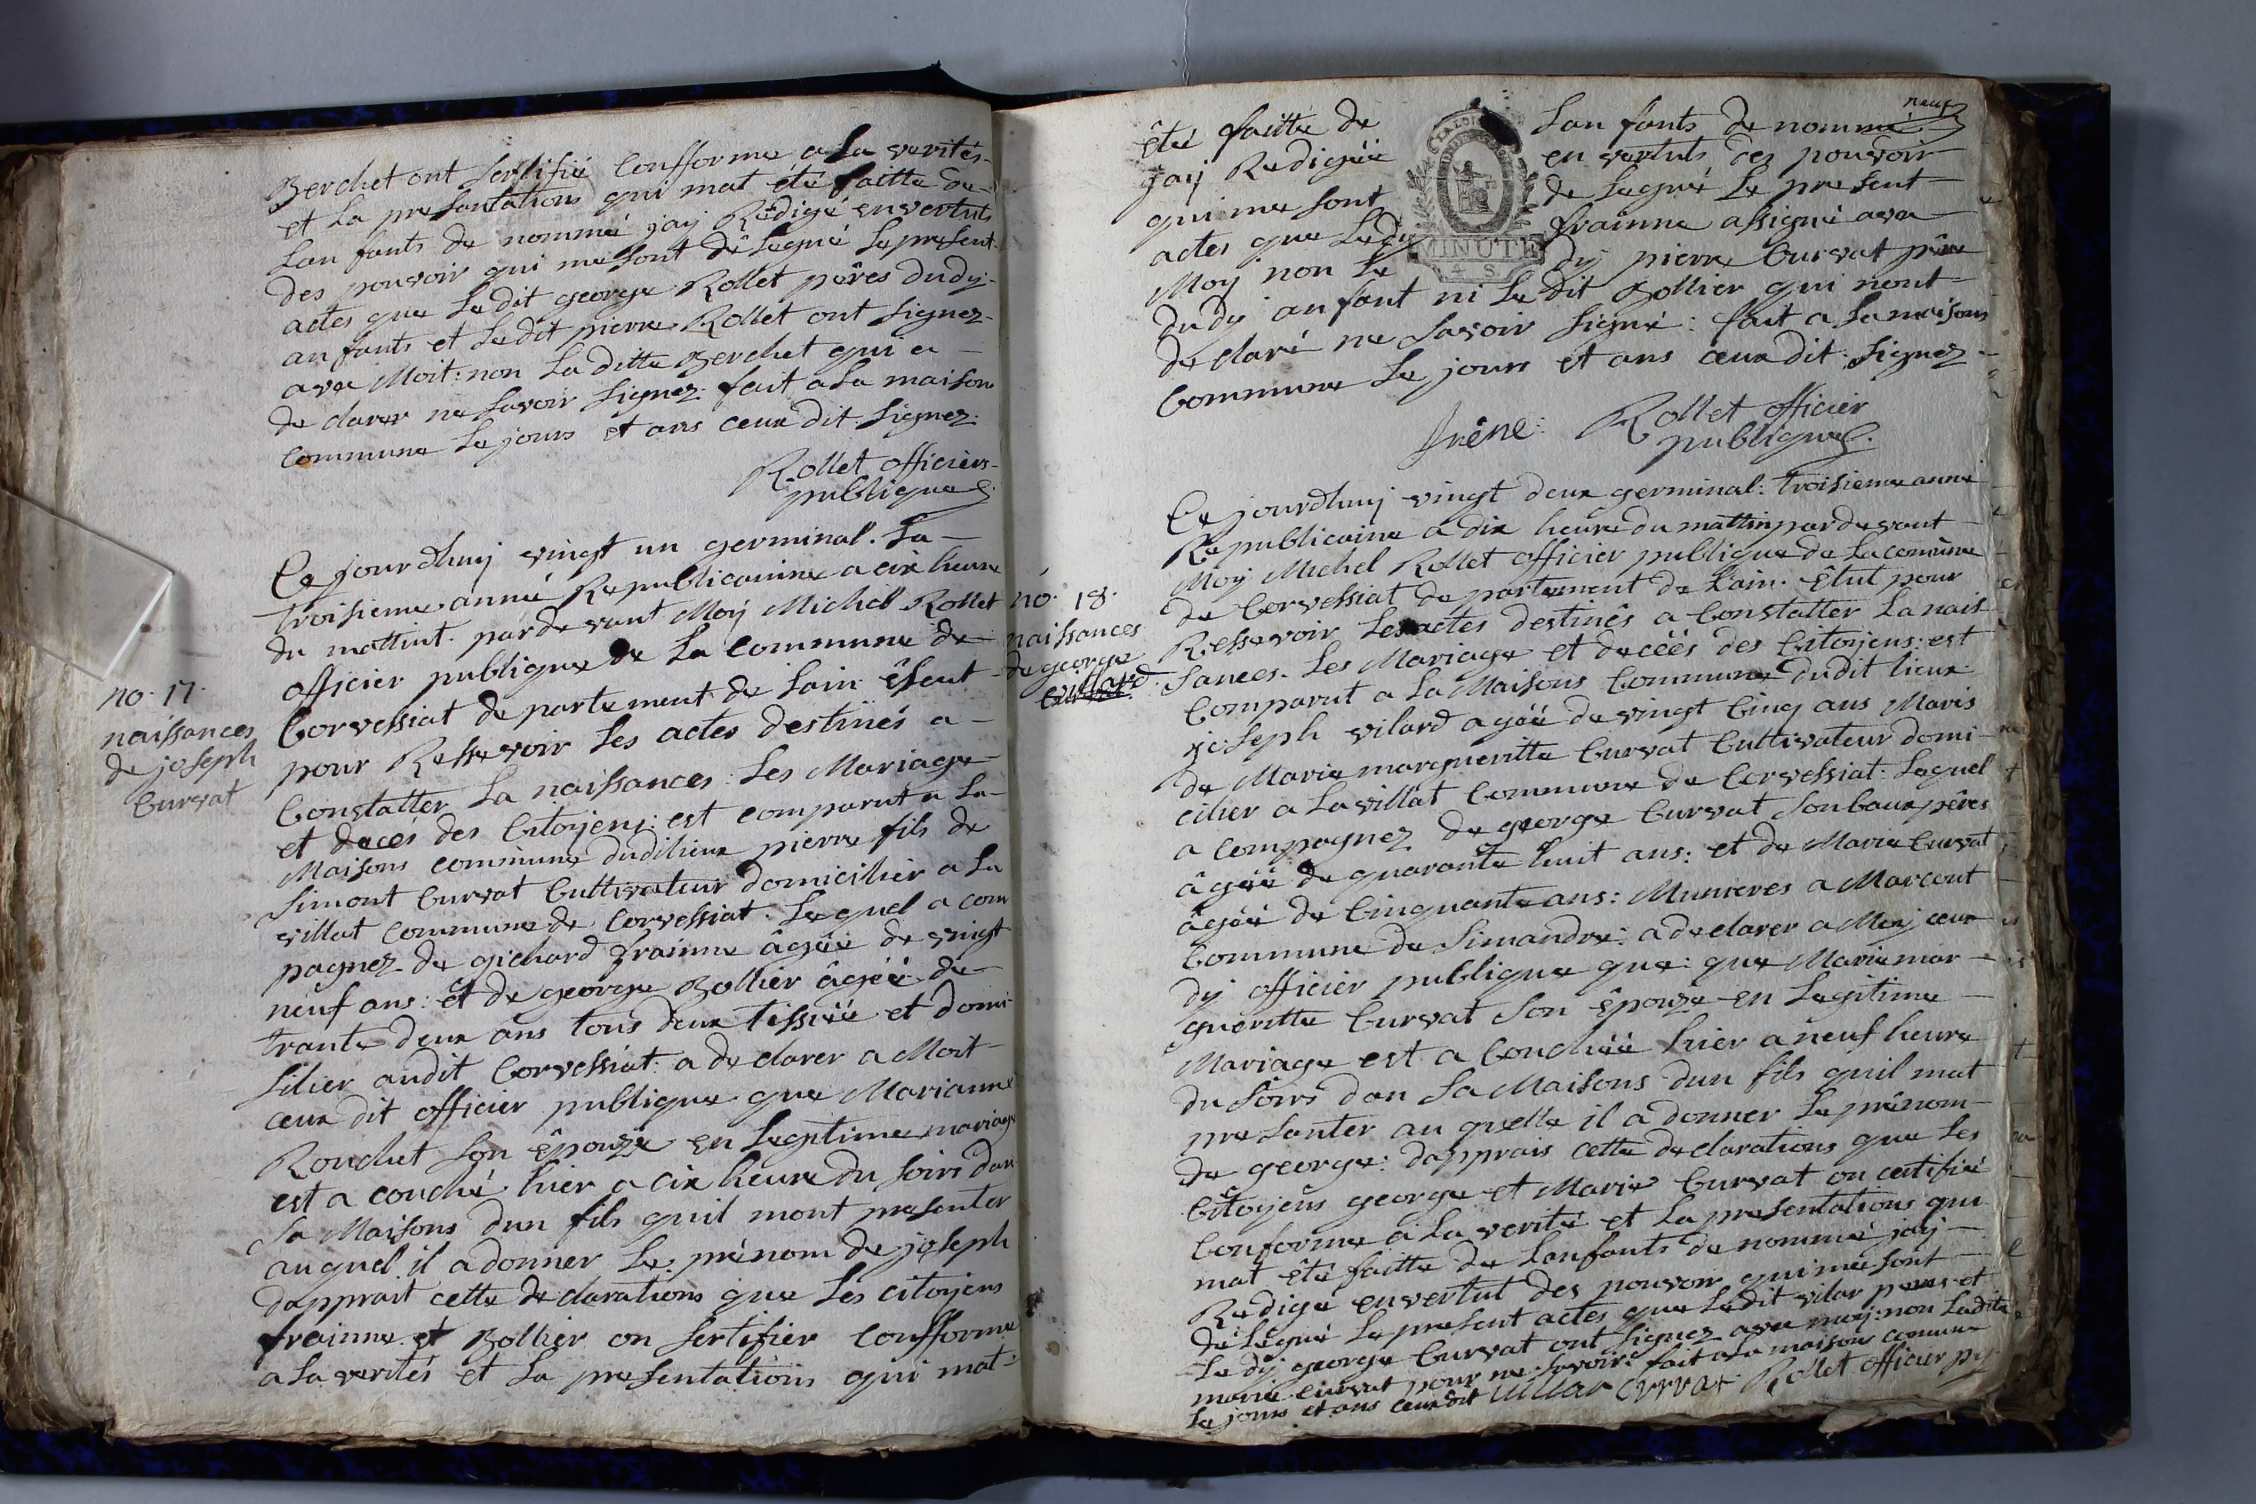 Berchet ont sertifié Confforme a la verités
et La presantations qui mat été faitte de
Lan fants de nommé jay Rédigé en vertuts
des pouvoir qui me sont délegué Le present
actes que Ledit george Rollet pêres dudy
an fants et Ledit pierre Rollet ont signez
avec Moit: non La ditte Berchet qui a
de clarer ne savoir signez. fait a la maison
commune Le jours et ans ceux dit. signez.
Rollet officiers
publique
no. 17.
naissances
de joseph
Curvat
Ce jourdhuy vingt un germinal. La
troisieme anné Republicainne a cix heure
du mattint. parde vant Moy Michel Rollet
officier publique de La commune de
Corvessiat de partement de Lain êleut
pour Ressevoir Les actes destinés a
Constatter La naissances. Les Mariage
et deces des Citoyens: est comparut a La
Maisons commune dudilieux pierre fils de
simont Curvat Cultivateur domicilier a La
villat commune de Corvessiat. Lequel a com
pagnez de gichard frainne âgéé de vingt
neuf ans: et de george Bollier âgéé de
trante deux ans tous deux tissiéé et domi
silier audit Corvessiat: a de clarer a Moit
ceux dit officier publique que Marianne
Rouchet son épouze en Legitime mariage
est a couché hier a cix heure du soirs dan
sa Maisons dun fils quil mont presenter
auquel il a donner Le prénom de joseph
dapprait cette de clarations que Les citoyens
frainne et Bollier on sertifier confforme
a la verités et La presentations qui mat
neuf
été faitte de Lan fants de nommé
jay Redigéé en vertuts des pouvoir
qui me sont de legué Le present
actes que Ledy frainne assigné avec
Moy non Le dy pierre Curvat pêre
dudy anfant ni Le dit Bollier qui nont
de claré ne savoir signé: fait a La maisons
Commune Le jours et ans ceux dit: signez
MINUTE
4 S
frêne: Rollet officier
publique
no. 18.
naissances
de george
villard
Ce jourdhuy vingt deux germinal: troisieme anné
Republicaine a dix heure du mattin parde vant
Moy Michel Rollet officier publique de La comune
de Corvessiat de partement de Lain. Êlut pour
Ressevoir Les actes destinés a Constatter La nais
sances. Les Mariage et decéés des Citoyens: est
Comparut a La Maisons Commune dudit lieux
joseph vilard agéé de vingt Cinq ans Maris
de Marie margueritte Curvat Cultivateur domi
cilier a La villat Commune de Corvessiat: Lequel
a compagnez de george Curvat son baux pêres
âgéé de quarante huit ans: et de Marie Curvat
âgéé de Cinquante ans: Munieres a Marcout
Commune de Simandre: a de clarer a Moy ceux
dy officier publique que: que Marie mar
gueritte Curvat son épouze en Legitime
Mariage est a Couchéé hier a neuf heure
du soirs dan sa Maisons dun fils quil mat
presanter au quelle il a donner Le prénom
de george: dapprais cette de clarations que Les
Citoyens george et Marie Curvat on certifié
Conforme a La verité et La presentations qui
mat été faitte de Lanfants de nommé jay
Redige envertut des pouvoir qui me sont
délégué Le present actes que Ledit vilar peres et
Le dy george Curvat ont signez avec moy: non Ladite
marie curvat pour ne savoir: fait a la maisons comune
Le jours et ans ceux dit villar Curvat Rollet officier py